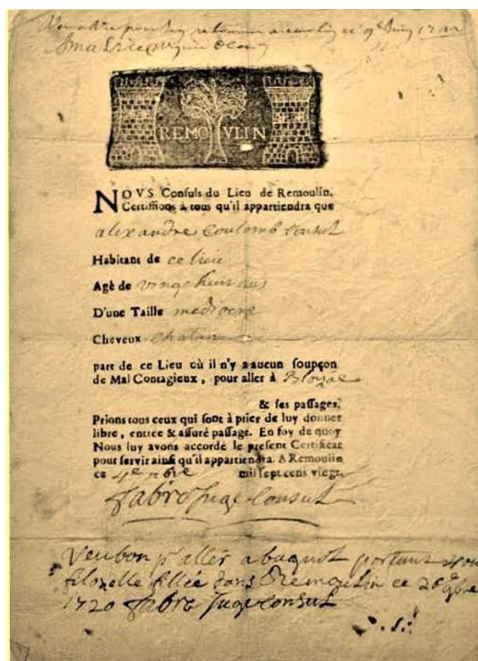 REMOVLIN
NOVS Consuls du Lieu de Remoulin,
Certifions à tous qu'il appartiendra que
alexandre coulomb consul
Habitant de ce lieu
Agè de vingt huit ans
D'une Taille mediocre
Cheveux chatan
part de ce Lieu où il n'y a aucun soupçon
de Mal Contagieux, pour aller à
& ses passages,
Prions tous ceux qui sont à prier de luy donner
libre, entrée & assuré passage. En foy de quoy
Nous luy avons accordé le present Certificat
pour servir ainsi qu'il appartiendra. A Remoulin
ce mil sept cens vingt,
fabre Juge Consul
Veu bon pr aller a bagnol portant
filozelle fillée dans Remoulin ce
1720 fabre Juge Consul